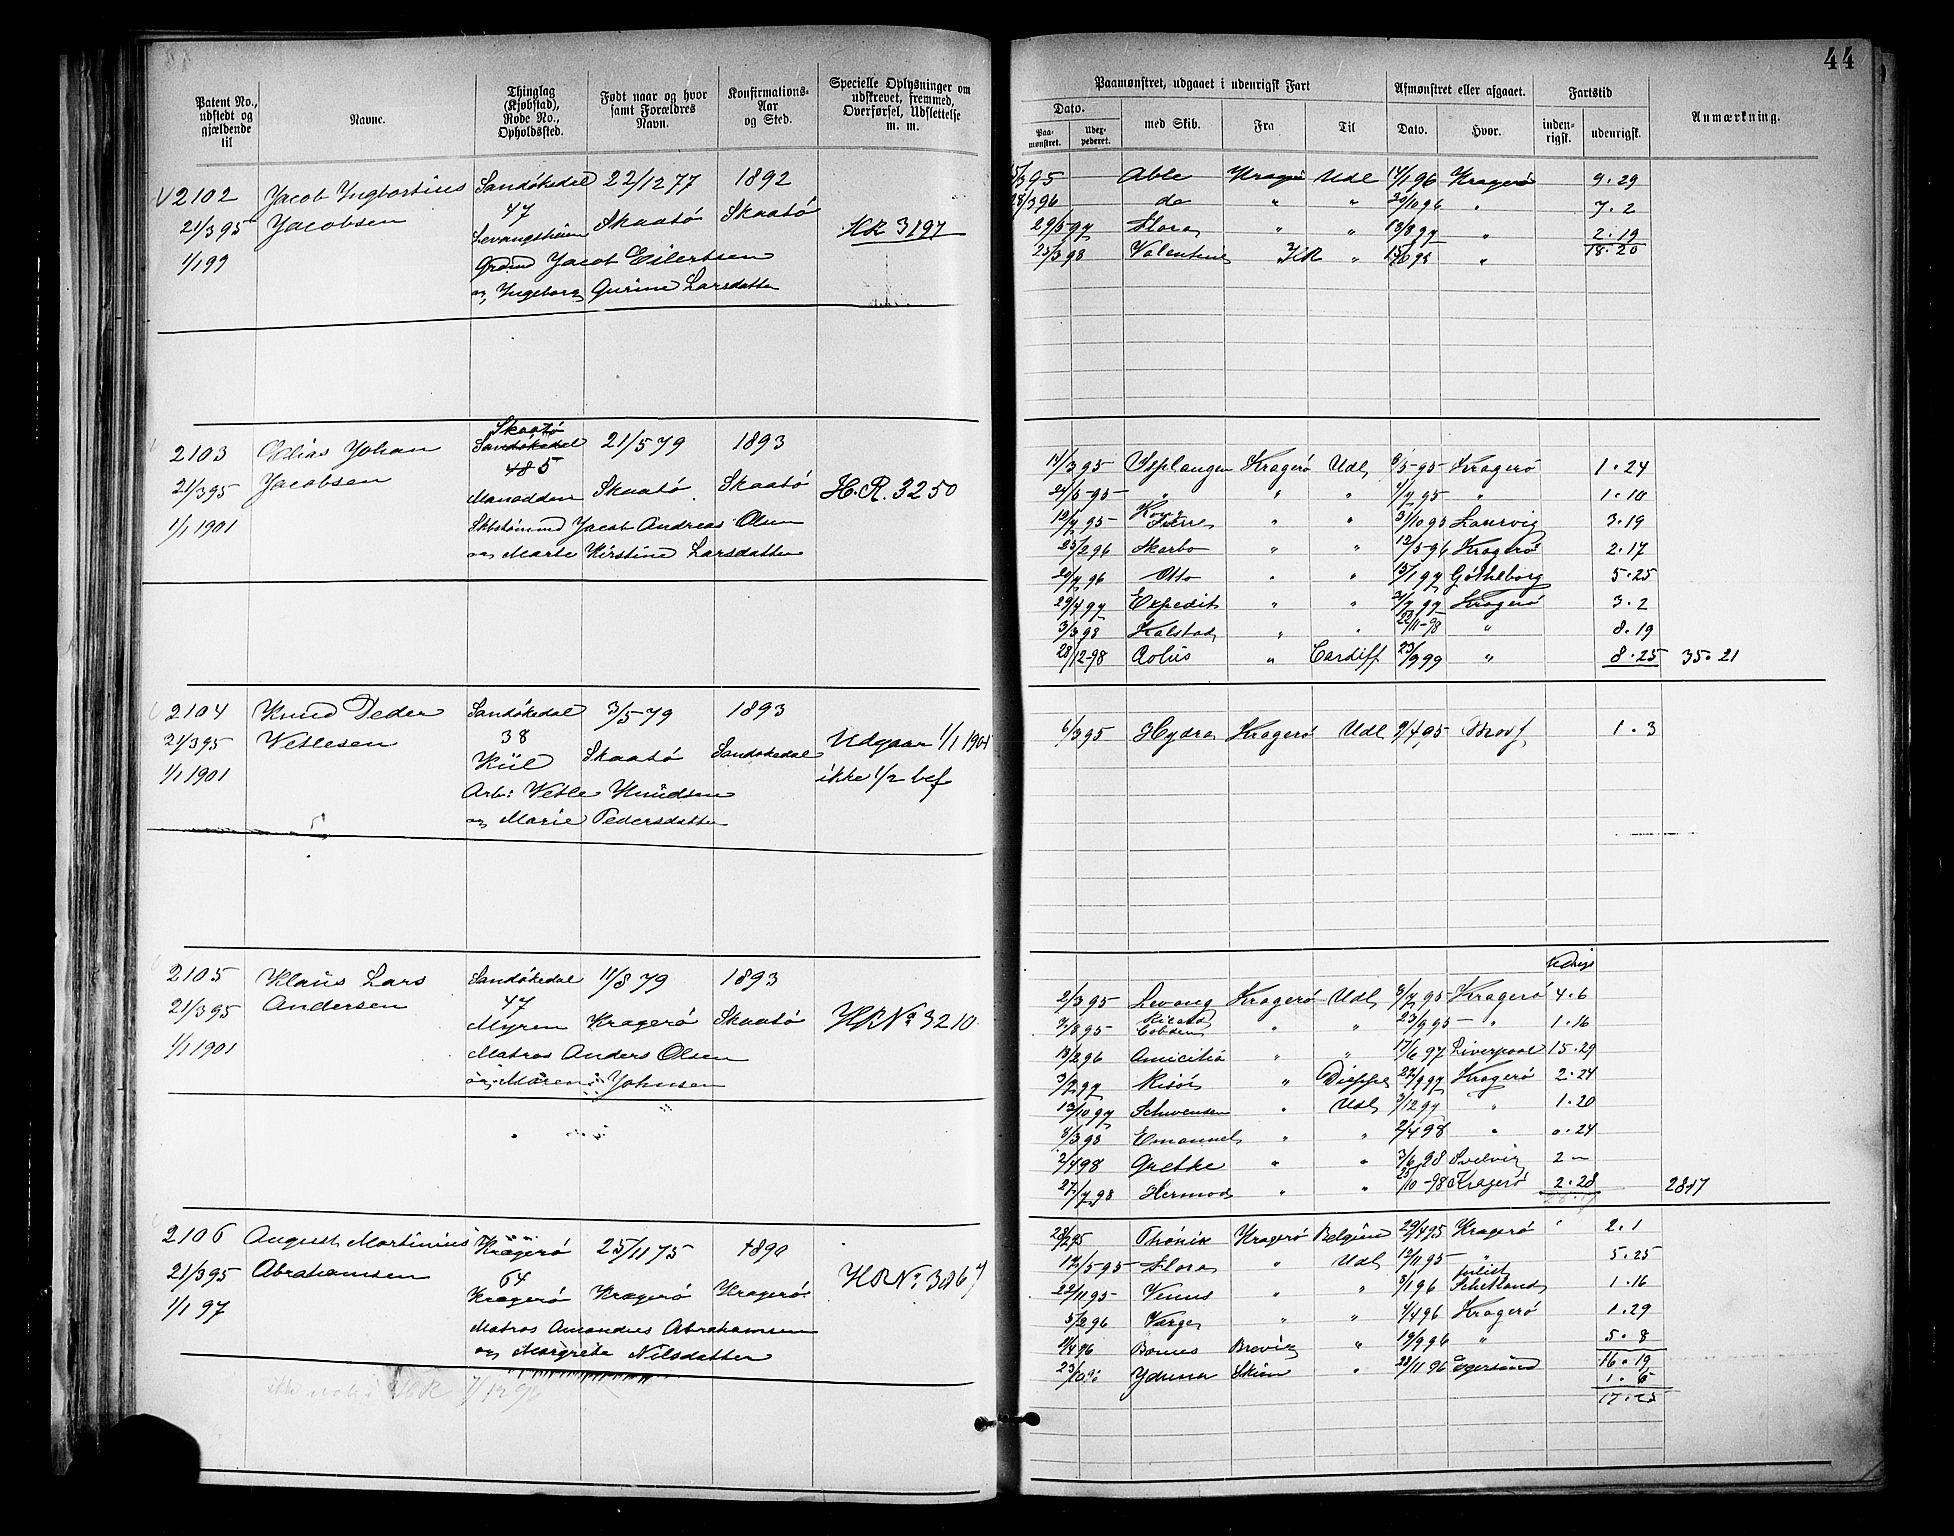 44
Patent No., udstedt og gjældende til
Navne.
Thinglag (Kjøbstad), Rode No., Opholdssted.
Født naar og hvor samt Forældres Navn.
Konfirmations-Aar og Sted.
Specielle Oplysninger om udskrevet, fremmed, Overførsel, Udslettelse m. m.
Paamønstret, udgaaet i udenrigsk Fart
Dato.
Paamønstret.
Udexpederet.
med Skib.
Fra
Til
Afmønstret eller afgaaet.
Dato.
Hvor.
Fartstid
indenrigsk.
udenrigsk.
Anmærkning.
2102 Jacob Ingbortius Sandøkedal 22/12 77 1892
21/3 95 Jacobsen 47 Skaatö Skaatö HR 3197
1/1 99 Grdmd Jacob Eilertsen
og Ingeborg Gurine Larsdatter
15/3 95 Able Kragerö Udl 14/1 96 Kragerö 9.29
28/3 96 do " " 29/10 96 " 7.2
29/5 97 Flora " " 18/8 97 " 2.19
25/3 98 Valentine KR " " 18.20
Skaatö
2103 Elias Johan Sandøkedal 21/5 79 1893
48 5
21/3 95 Jacobsen Manodden Skaatö Skaatö H.R. 3250
1/1 1901 Skbstømmd Jacob Andreas Olsen
og Marte Kirstine Larsdatter
14/3 95 Isplangen Kragerö Udl 8/5-95 Kragerö 1.24
24/5-95 " " " 4/7 95 " 1.10
12/7 95 Kong Sverre " " 31/10 95 Laurvig 3.19
25/2 96 Skarbo " " 12/5-96 Kragerö 2.17
20/7 96 Otto " " 15/1 97 Götheborg 5.25
29/4 97 Expedit " " 31/7 97 Kragerö 3.2
3/3 98 Kalstad " " 22/11-98 " 8.19
28/12-98 Aolus " Cardiff 23/9 99 " 8.25 35.21
2104 Knud Peder Sandøkedal 3/5-79 1893
21/3 95 Vetlesen 38 Skaatö Sandøkedal Udgaar 1/1 1901
1/1 1901 Kiil ikke 1/2 bef
Arb: Vetle Knudsen
og Marie Pedersdatter
6/3 95 Hydra Kragerö Udl 9/4 95 1.3
2105 Klaus Lars Sandøkedal 11/8 79 1893
21/3 95 Andersen 47
Myren Kragerö Skaatö HR No. 3210
1/1 1901 Matros Anders Olsen
og Maren Johnsen
Udrigs
2/3 95 Levang Kragerö Udl 8/7 95 Kragerö 4.6
7/8 95 Ricard Cobden " " 23/9 95 " 1.16
18/2 96 Amicitia " " 17/6 97 Liverpool 15.29
3/7 97 Risör " Dieppe 27/9 97 Kragerö 2.24
13/10 97 Schwensen " Udl 3/12 97 " 1.20
8/3 98 Emanuel " " 2/4 98 " 0.24
2/4 98 Grethe " " 3/6 98 Svelvig 2 "
27/7 98 Hermod " " 25/10-98 Kragerö 2.28 28.17
2106 August Martinius Kragerö 25/11 75 1890
21/3 95 Abrahamsen 64
1/1 97 Kragerö Kragerö Kragerö HR No. 3867
Matros Amandus Abrahamsen
og Margrete Nilsdatter
28/2 95 Phönix Kragerö Belgien 29/4 95 Kragerö 2.1
17/5-95 Flora " Udl 12/11 95 " 5.25
22/11 95 Venus " " 8/1 96 forlist Schetland 1.16
5/2 96 Varge " " 4/4 96 Kragerö 1.29
11/4 96 Brevig " 19/9 96 " 5.8
16.19
23/10 96 Yduna Skien " 28/11 96 Egersund 1.6
17.25